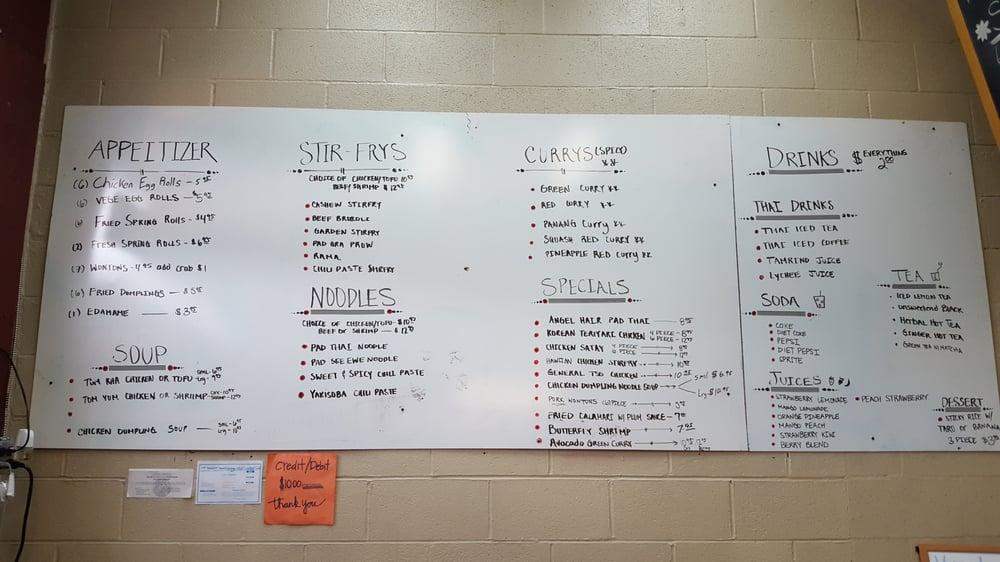 APPEITIZER
(6) Chicken Egg Rolls - 5
VEGE EGG ROLLS - $5
FRIED SPRING ROLLS - $4
(2) FRESH SPRING ROLLS - $6
(7) WONTONS - 4.95 add crab $1
(6) FRIED DUMPLINGS — $5
(1) EDAMAME — $3
SOUP
TOM KHA CHICKEN OR TOFU
TOM YUM CHICKEN OR SHRIMP
CHICKEN DUMPLING SOUP
STIR-FRYS
CHOICE OF CHICKEN/TOFU 10
BEEF/SHRIMP $12
CASHEW STIRFRY
BEEF
GARDEN STIRFRY
PAD GRA PROW
RAMA
CHILI PASTE STIRFRY
NOODLES
CHOICE OF CHICKEN/TOFU - $10
BEEF OR SHRIMP — $12
PAD THAI NOODLE
PAD SEE EWE NOODLE
SWEET & SPICY CHILI PASTE
YAKISOBA CHILI PASTE
CURRYS (SPICY)
GREEN CURRY
RED CURRY
PANANG Curry
SQUASH RED CURRY
PINEAPPLE RED Curry
SPECIALS
ANGEL HAIR PAD THAI — 8
KOREAN TERIYAKI CHICKEN 4 PIECE - 8
6 PIECE - 12
CHICKEN SATAY 4 PIECE 8
6 PIECE
CHICKEN STIRFRY 10
GENERAL TSO CHICKEN 10
CHICKEN DUMPLING NOODLE SOUP
PORK WONTONS
FRIED CALAMARI W/ PLUM SAUCE - 7
BUTTERFLY SHRIMP 7
AVOCADO GREEN CURRY
DRINKS $ EVERYTHING
2.00
THAI DRINKS
THAI ICED TEA
THAI ICED COFFEE
TAMRIND JUICE
LYCHEE JUICE
SODA
COKE
DIET COKE
PEPSI
DIET PEPSI
SPRITE
TEA
ICED LEMON TEA
UNSWEETEND BLACK
HERBAL HOT TEA
GINGER HOT TEA
GREEN TEA MATCHA
JUICES
STRAWBERRY LEMONADE • PEACH STRAWBERRY
MANGO LEMONADE
ORANGE PINEAPPLE
MANGO PEACH
STRAWBERRY KIWI
BERRY BLEND
DESSERT
STICKY RICE W/
TARO OR BANANA
3 PIECE $3
Credit/Debit
$10.00
thank you